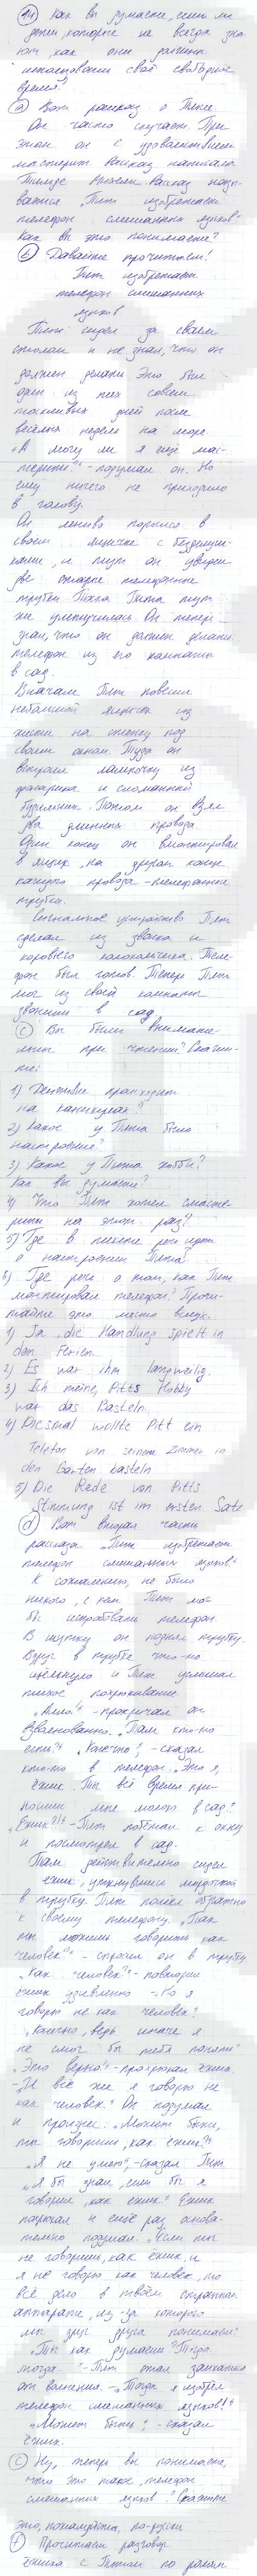 11 Как вы думаете, есть ли
дети, которые не всегда зна-
ют, как они должны
использовать своё свободное
время?
а) Вот рассказ о Пите.
Он часто скучает. При
этом он с удовольствием
мастерит. Рассказ написала
Рассказ назы-
вается „Пит изобретает
телефон смешанных языков“
Как вы это понимаете?
б) Давайте прочитаем!
Пит изобретает
телефон смешанных
языков
Пит сидел за своим
столом и не знал, что он
должен делать. Это был
один из тех совсем
тоскливых дней после
весёлых недель на море.
„А могу ли я ещё мас-
терить?“ - подумал он. Но
ему ничего не приходило
в голову.
Он лениво порылся в
своем ящичке с безделуш-
ками, и тут он увидел
две старые телефонные
трубки. Тоска Пита тут
же улетучилась. Он теперь
знал, что он должен делать:
телефон из его комнаты
в сад.
Вначале Пит повесил
небольшой ящичек из
жести на стенку под
своим окном. Туда он
встроил лампочку из
фонарика и сломанный
будильник. Потом он взял
два длинных провода.
Один конец он вмонтировал
в ящик, на другой конец
каждого провода - телефонные
трубки.
Сигнальное устройство Пит
сделал из звонка и
коровьего колокольчика. Теле-
фон был готов. Теперь Пит
мог из своей комнаты
звонить в сад.
с) Вы были внимате-
льны при чтении? Скажи-
те:
1) Действие происходит
на каникулах?
2) Какое у Пита было
настроение?
3) Какое у Пита хобби?
Как вы думаете?
4) Что Пит хотел смасте-
рить на этот раз?
5) Где в тексте речь идёт
о настроении Пита?
6) Где речь о том, как Пит
мастерил телефон? Прочи-
тайте это место вслух.
1) Ja, die Handlung spielt in
den Ferien.
2) Es war ihm langweilig.
3) Ich meine, Pitts Hobby
war das Basteln.
4) Diesmal wollte Pitt ein
Telefon von seinem Zimmer in
den Garten basteln
5) Die Rede von Pitts
Stimmung ist im ersten Satz
d) Вот вторая часть
рассказа „Пит изобретает
телефон смешанных языков“
К сожалению, не было
никого, с кем Пит мог
бы испробовать телефон.
В шутку он поднял трубку.
Вдруг в трубке что-то
щёлкнуло и Пит услышал
тихое похрюкивание.
„Алло!“ - прокричал он
взволнованно. „Там кто-то
есть?“ „Конечно“, - сказал
кто-то в телефон. „Это я,
ёжик. Ты всё время при-
носишь мне молоко в сад.“
„Ёжик?!“ - Пит побежал к окну
и посмотрел в сад.
Там действительно сидел
ёжик, уткнувшись мордочкой
в трубку. Пит пошёл обратно
к своему телефону. „Так
ты можешь говорить как
человек?“ - спросил он в трубку.
„Как человек?“ - повторил
ёжик удивлённо - „Но я
говорю не как человек?“
„Конечно, ведь иначе я
не смог бы тебя понять“
„Это верно“ - прохрюкал ёжик.
- „И всё же я говорю не
как человек.“ Он подумал
и произнес: „Может быть,
ты говоришь, как ёжик?“
„Я не умею“, - сказал Пит.
„Я бы знал, если бы я
говорил, как ёжик“ Ёжик
и ещё раз основа-
тельно подумал. „Если ты
не говоришь, как ёжик, и
я не говорю как человек, то
всё дело в твоём странном
аппарате, из-за которого
мы друг друга понимаем“
„Ты так думаешь? Тогда..
тогда..“ - Пит стал заикаться
от волнения. - „Тогда я изобрёл
телефон смешанных языков!“
„Может быть“, - сказал
ёжик.
е) Ну, теперь вы понимаете,
что это такое, телефон
смешанных языков? Скажите
это, пожалуйста, по-русски
f) Прочитаем разговор
ёжика с Питом по ролям.